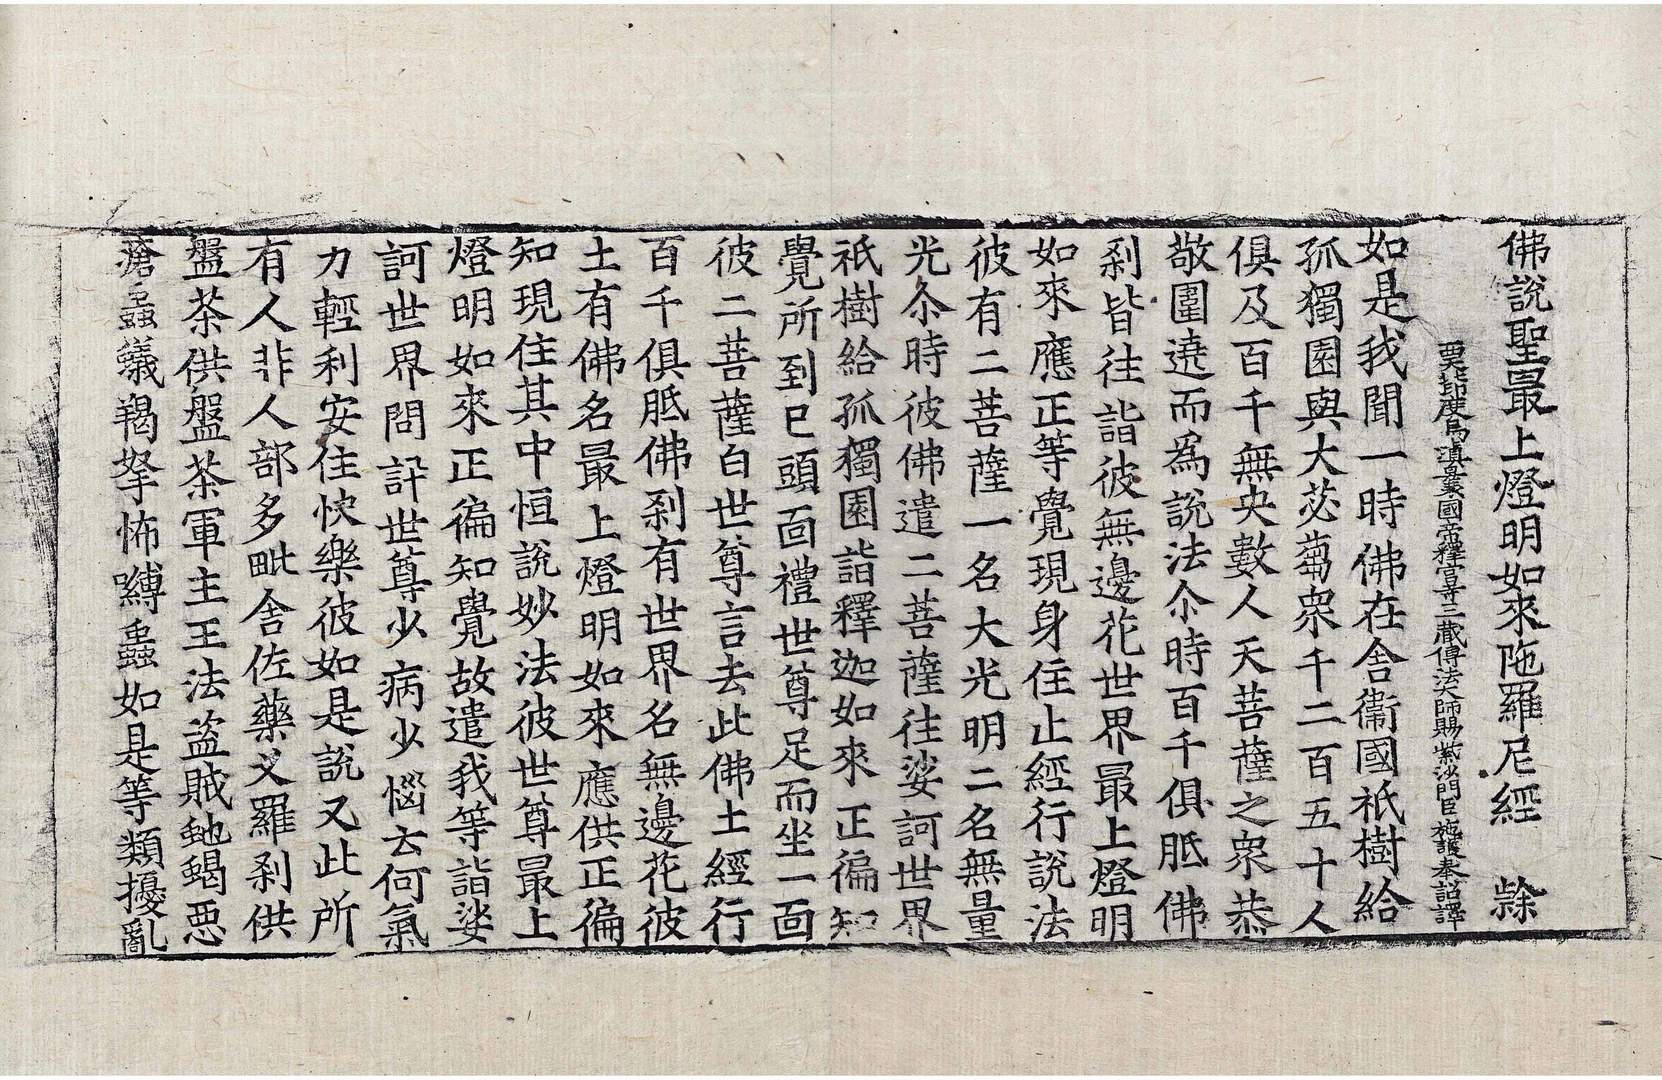 佛說聖最上燈明如來陁羅尼經　𨽻
西北印度烏塡曩國帝釋宮寺三藏傳法大師賜紫沙門臣施護奉詔譯
如是我聞一時佛在舍衞國祇樹給
孤獨園與大苾蒭衆千二百五十人
俱及百千無央數人天菩薩之衆恭
敬圍遶而爲說法尒時百千俱胝佛
剎皆往詣彼無邊花世界最上燈明
如來應正等覺現身住止經行說法
彼有二菩薩一名大光明二名無量
光尒時彼佛遣二菩薩往娑訶世界
祇樹給孤獨園詣釋迦如來正徧知
覺所到已頭面禮世尊足而坐一面
彼二菩薩白世尊言去此佛土經行
百千俱胝佛剎有世界名無邊花彼
土有佛名最上燈明如來應供正徧
知現住其中恒說妙法彼世尊最上
燈明如來正徧知覺故遣我等詣娑
訶世界問訊世尊少病少惱去何氣
力輕利安住快樂彼如是說又此所
有人非人部多毗舍佐藥叉羅剎供
盤茶供盤茶軍主王法盜賊虵蝎惡
瘡蟲蟻羯拏怖嚩蟲如是等類擾亂